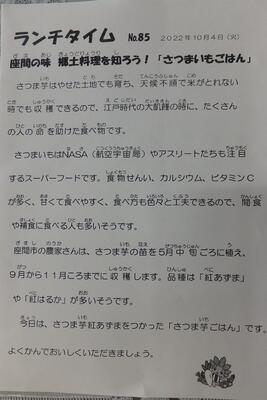 ランチタイム No.85 2022年10月4日（火）
座間の味 郷土料理を知ろう！「さつまいもごはん」
さつま芋はやせた土地でも育ち、天候不順で米がとれない
時でも収穫できるので、江戸時代の大飢饉の時に、たくさん
の人の命を助けた食べ物です。
さつまいもはNASA（航空宇宙局）やアスリートたちも注目
するスーパーフードです。食物せんい、カルシウム、ビタミンC
が多く、甘くて食べやすく、食べ方も色々と工夫できるので、間食
や補食に食べる人も多いそうです。
座間市の農家さんは、さつま芋の苗を5月中旬ごろに植え、
9月から11月ころまでに収穫します。品種は「紅あずま」
や「紅はるか」が多いそうです。
今日は、さつま芋紅あずまをつかった「さつま芋ごはん」です。
よくかんでおいしくいただきましょう。